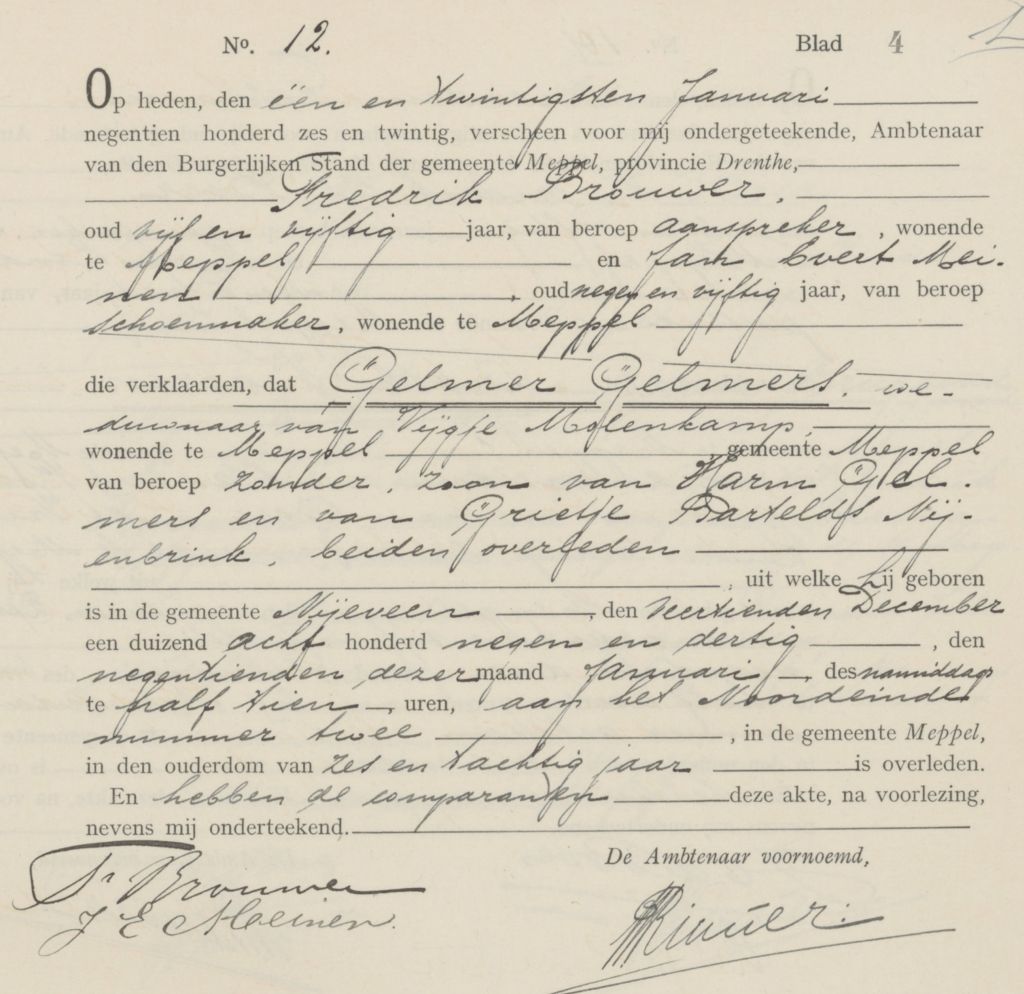 No. 12. Blad 4
Op heden, den één en twintigsten Januari
negentien honderd zes en twintig, verscheen voor mij ondergeteekende, Ambtenaar
van den Burgerlijken Stand der gemeente Meppel, provincie Drenthe,
Fredrik Brouwer,
oud vijf en vijftig jaar, van beroep aanspreker, wonende
te Meppel en Jan Evert Mei-
nen, oud negen en vijftig jaar, van beroep
schoenmaker, wonende te Meppel
die verklaarden, dat Gelmer Gelmers, we-
duwnaar van Vijgje Molenkamp,
wonende te Meppel gemeente Meppel
van beroep zonder, zoon van Harm Gel-
mers en van Grietje Bartelds Nij-
enbrink, beiden overleden
, uit welke hij geboren
is in de gemeente Nijeveen, den veertienden December
een duizend acht honderd negen en dertig, den
negentienden dezer maand Januari, des namiddags
te half tien uren, aan het Noordeinde
nummer twee, in de gemeente Meppel,
in den ouderdom van zes en tachtig jaar is overleden.
En hebben de comparanten deze akte, na voorlezing,
nevens mij onderteekend.
De Ambtenaar voornoemd,
Fr Brouwer
J E Meinen.